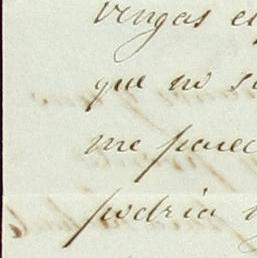 vengas es
que no s
me parec
podria